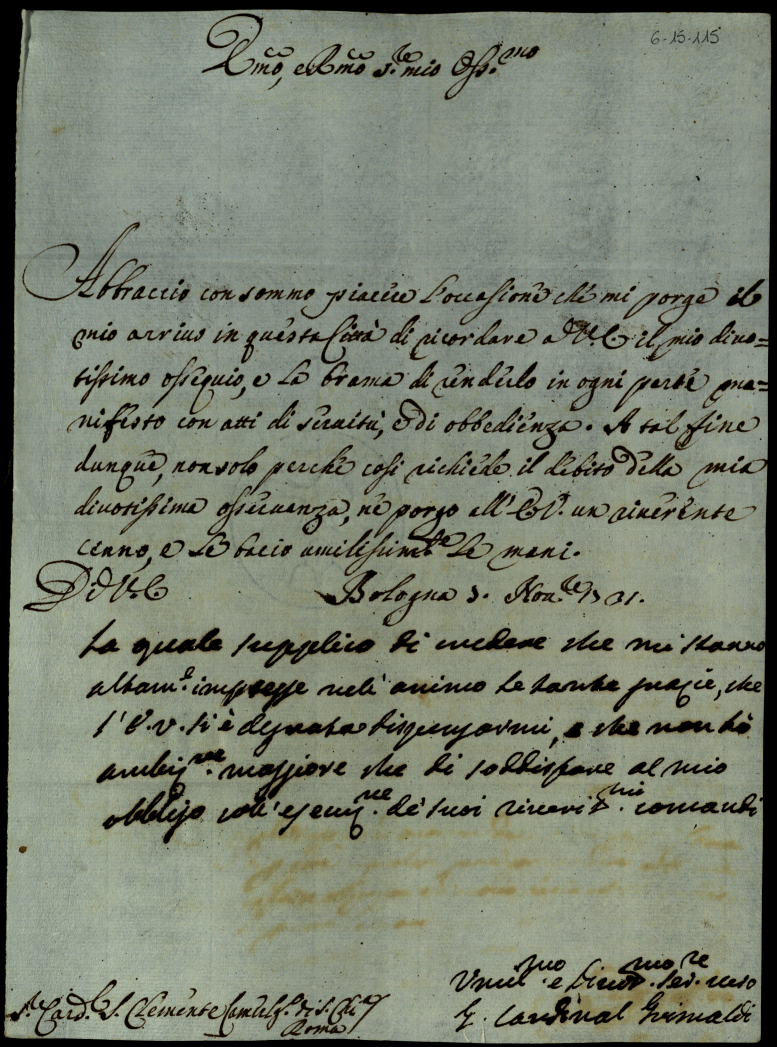 6-15-115
Em̃o, e Rm̃o S.re mio Oss.mo
Abbraccio con sommo piacere l'occasione che mi porge il
mio arrivo in questa Città di ricordare a V.E. il mio divo=
tissimo ossequio, e la brama di renderlo in ogni parte ma=
nifesto con atti di servitù, e di obbedienza. A tal fine
dunque, non solo perche così richiede il debito della mia
divotissima osservanza, ne porgo all' E.V. un riverente
cenno, e le bacio umilissim.te le mani.
D. V.E. Bologna 3. Nov.re 1731.
La quale supplico di credere che mi stanno
altam.e impresse nell'animo le tante grazie, che
l'E.V. si è degnata dispensarmi, e che non hò
ambiz.ne maggiore che di soddisfare al mio
obbligo coll'esecuz.ne de suoi riverit.mi comandi
S.r Card.l S. Clemente
Roma
Umil.mo e Divot.mo Ser.re vero
G. Cardinal Grimaldi